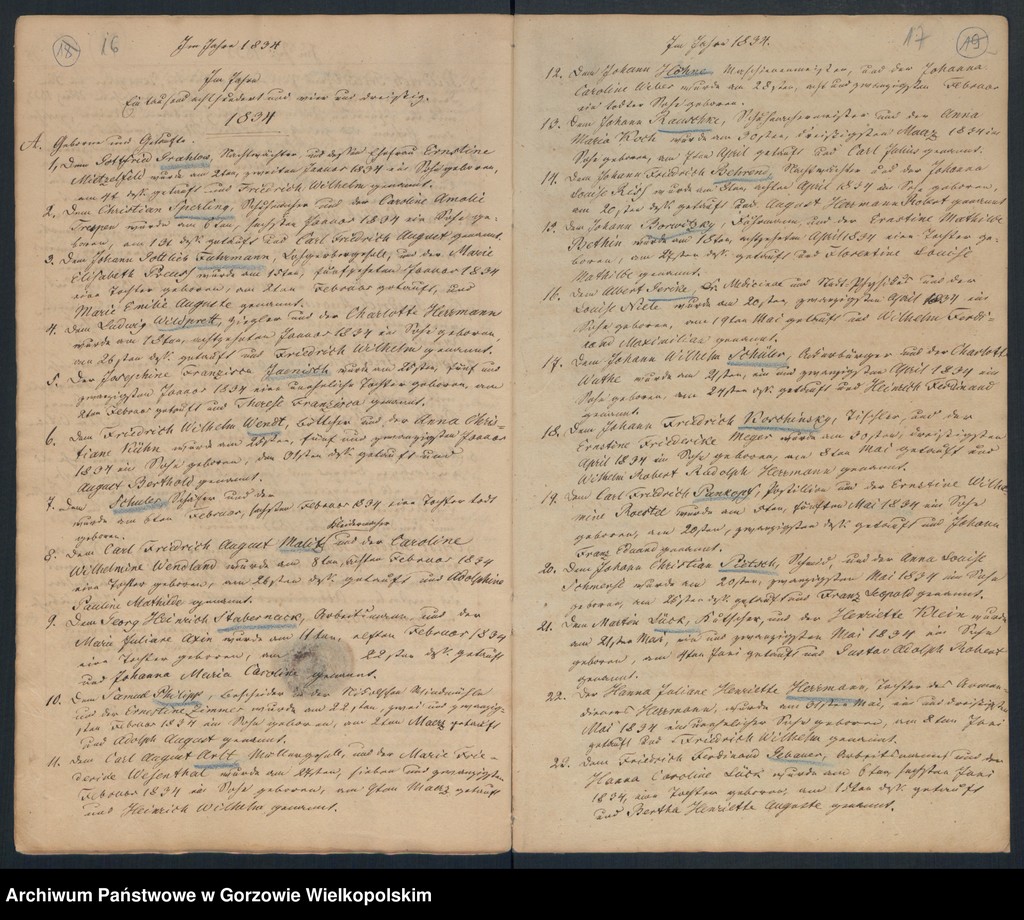 18 16
Im Jahre 1834
Im Jahre
Eintausend achthundert und vier und dreißig.
1834
A. Geborne und Getaufte.
1, Dem Gottfried Frahlow, Nachtwächter und dessen Ehefrau Ernstine
Mützelfeld wurde am 2ten, zweiten Januar 1834 ein Sohn geboren,
am getauft und Friedrich Wilhelm genannt.
2. Dem Christian Sperling, und der Caroline Amalie
Treppen wurde am 6ten, sechsten Januar 1834 ein Sohn ge-
boren, am getauft und Carl Friedrich August genannt.
3. Dem Johann Gottlieb Fuhrmann, und der Marie
Elisabeth Preuß wurde am 15ten, fünfzehnten Januar 1834
eine Tochter geboren, am 2ten Februar getauft, und
Marie Emilie Auguste genannt.
4. Dem Ludwig Weldprett, Ziegler und der Charlotte Herrmann
wurde am 18ten, achtzehnten Januar 1834 ein Sohn geboren,
am 26sten getauft und Friedrich Wilhelm genannt.
5. Der Josephine Franzisca Jaenisch wurde am 25sten, fünf und
zwanzigsten Januar 1834 eine uneheliche Tochter geboren, am
Februar getauft und Therese Franzisca genannt.
6. Dem Friedrich Wilhelm Wendt, Böttcher und der Anna Chri-
stiane Kühn wurde am 25sten, fünf und zwanzigsten Januar
1834 ein Sohn geboren, den 31sten getauft und
August Berthold genannt.
7. Dem Schuler, Schäfer und der
wurde am 6ten Februar, sechsten Februar 1834 eine Tochter todt
geboren.
Kleidermacher
8. Dem Carl Friedrich August Malitz und der Caroline
Wilhelmine Wendland wurde am 8ten, achten Februar 1834
eine Tochter geboren, am getauft und Adolphine
Pauline Mathilde genannt.
9. Dem Georg Heinrich Stabernack, Arbeitsmann, und der
Maria Juliane Axin wurde am 11ten, elften Februar 1834
eine Tochter geboren, am 22sten getauft
und Johanna Maria Caroline genannt.
10. Dem Samuel Philipp, Bescheider in der Windmühle
und der Ernestine Zimmer wurde am 22sten, zwei und zwanzig-
sten Februar 1834 ein Sohn geboren, am 2ten Maerz getauft
und Adolph August genannt.
11. Dem Carl August Arlt, Maurergesell, und der Marie Frie-
dericke Wesenthal wurde am 27sten, sieben und zwanzigsten
Februar 1834 ein Sohn geboren, am 9ten Maerz getauft
und Heinrich Wilhelm genannt.
17 19
Im Jahre 1834.
12. Dem Johann Höhne, Maschinenmeister, und der Johanna
Caroline Weber wurde am 28sten, acht und zwanzigsten Februar
ein todter Sohn geboren.
13. Dem Johann Rauschke, Schuhmachermeister und der Anna
Maria Koch wurde am 30sten, dreißigsten Maerz 1834 ein
Sohn geboren, am 7ten April getauft und Carl Julius genannt.
14. Dem Johann Friedrich Behrend, Nachtwächter und der Johanna
Louise wurde am 8ten, achten April 1834 ein Sohn geboren,
am 20sten getauft und August Herrmann Robert genannt
15. Der Johann Borwitzky, und der Ernstine Mathilde
Bethin wurde am 18ten, achtzehnten April 1834 eine Tochter ge-
boren, am 27sten getauft und Florentine Louise
Mathilde genannt.
16. Dem Albert Gericke, Dr Medicinae und Stadt-Physikus und der
Louise Niele wurde am 20sten, zwanzigsten April 1834 ein
Sohn geboren, am 19ten Mai getauft und Wilhelm Ferdi-
nand Maximilian genannt.
17. Dem Johann Wilhelm Schüler, Ackerbürger und der Charlotte
Wuthe wurde am 21sten, ein und zwanzigsten April 1834 ein
Sohn geboren, am 27sten getauft und Heinrich Ferdinand
genannt.
18. Dem Johann Friedrich Korschinsky, Tischler, und der
Ernstine Friedericke Meyer wurde am 30sten, dreißigsten
April 1834 ein Sohn geboren, am 8ten Mai getauft und
Wilhelm Robert Rudolph Herrmann genannt.
19. Dem Carl Friedrich Pankopf, Postillion und der Ernestine Wilhel-
mine Roestel wurde am 5ten, fünften Mai 1834 ein Sohn
geboren, am 20sten, zwanzigsten getauft und Johann
Franz Eduard genannt.
20. Dem Johann Christian Pietsch, Schmid, und der Anna Louise
Schmerse wurde am 20sten, zwanzigsten Mai 1834 ein Sohn
geboren, am getauft und Franz Leopold genannt.
21. Dem Martin Lück, Kutscher, und der Henriette Klein wurde
am 21sten Mai, ein und zwanzigsten Mai 1834 ein Sohn
geboren, am Juni getauft und Gustav Adolph Robert
genannt.
22. Der Hanna Juliane Henriette Herrmann, Tochter des
Herrmann, wurde am 31sten Mai, ein und dreißigsten
Mai 1834 ein unehelicher Sohn geboren, am 8ten Juni
getauft und Friedrich Wilhelm genannt.
23. Dem Friedrich Ferdinand Gebauer, Arbeitsmann und der
Hanna Caroline Lück wurde am 6ten, sechsten Juni
1834, eine Tochter geboren, am 15ten getauft
und Bertha Henriette Auguste genannt.
Archiwum Państwowe w Gorzowie Wielkopolskim